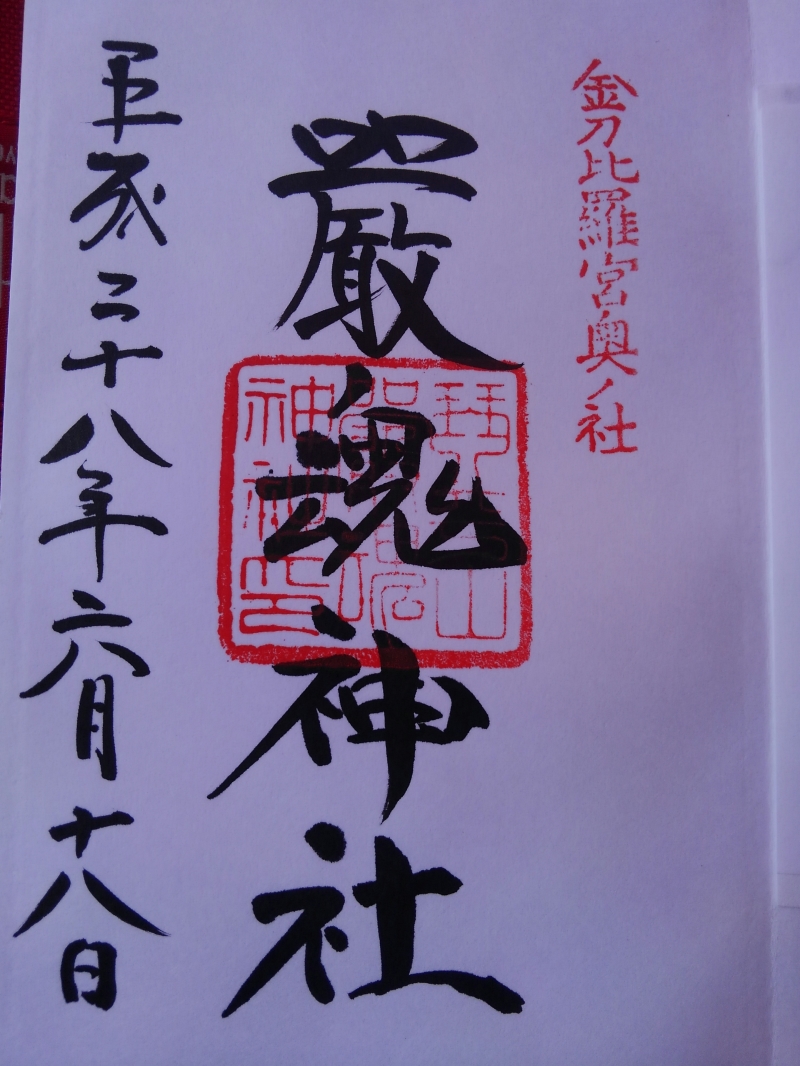 金刀比羅宮奥ノ社
嚴魂神社
琴平山
嚴魂
神社印
平成二十八年六月十八日